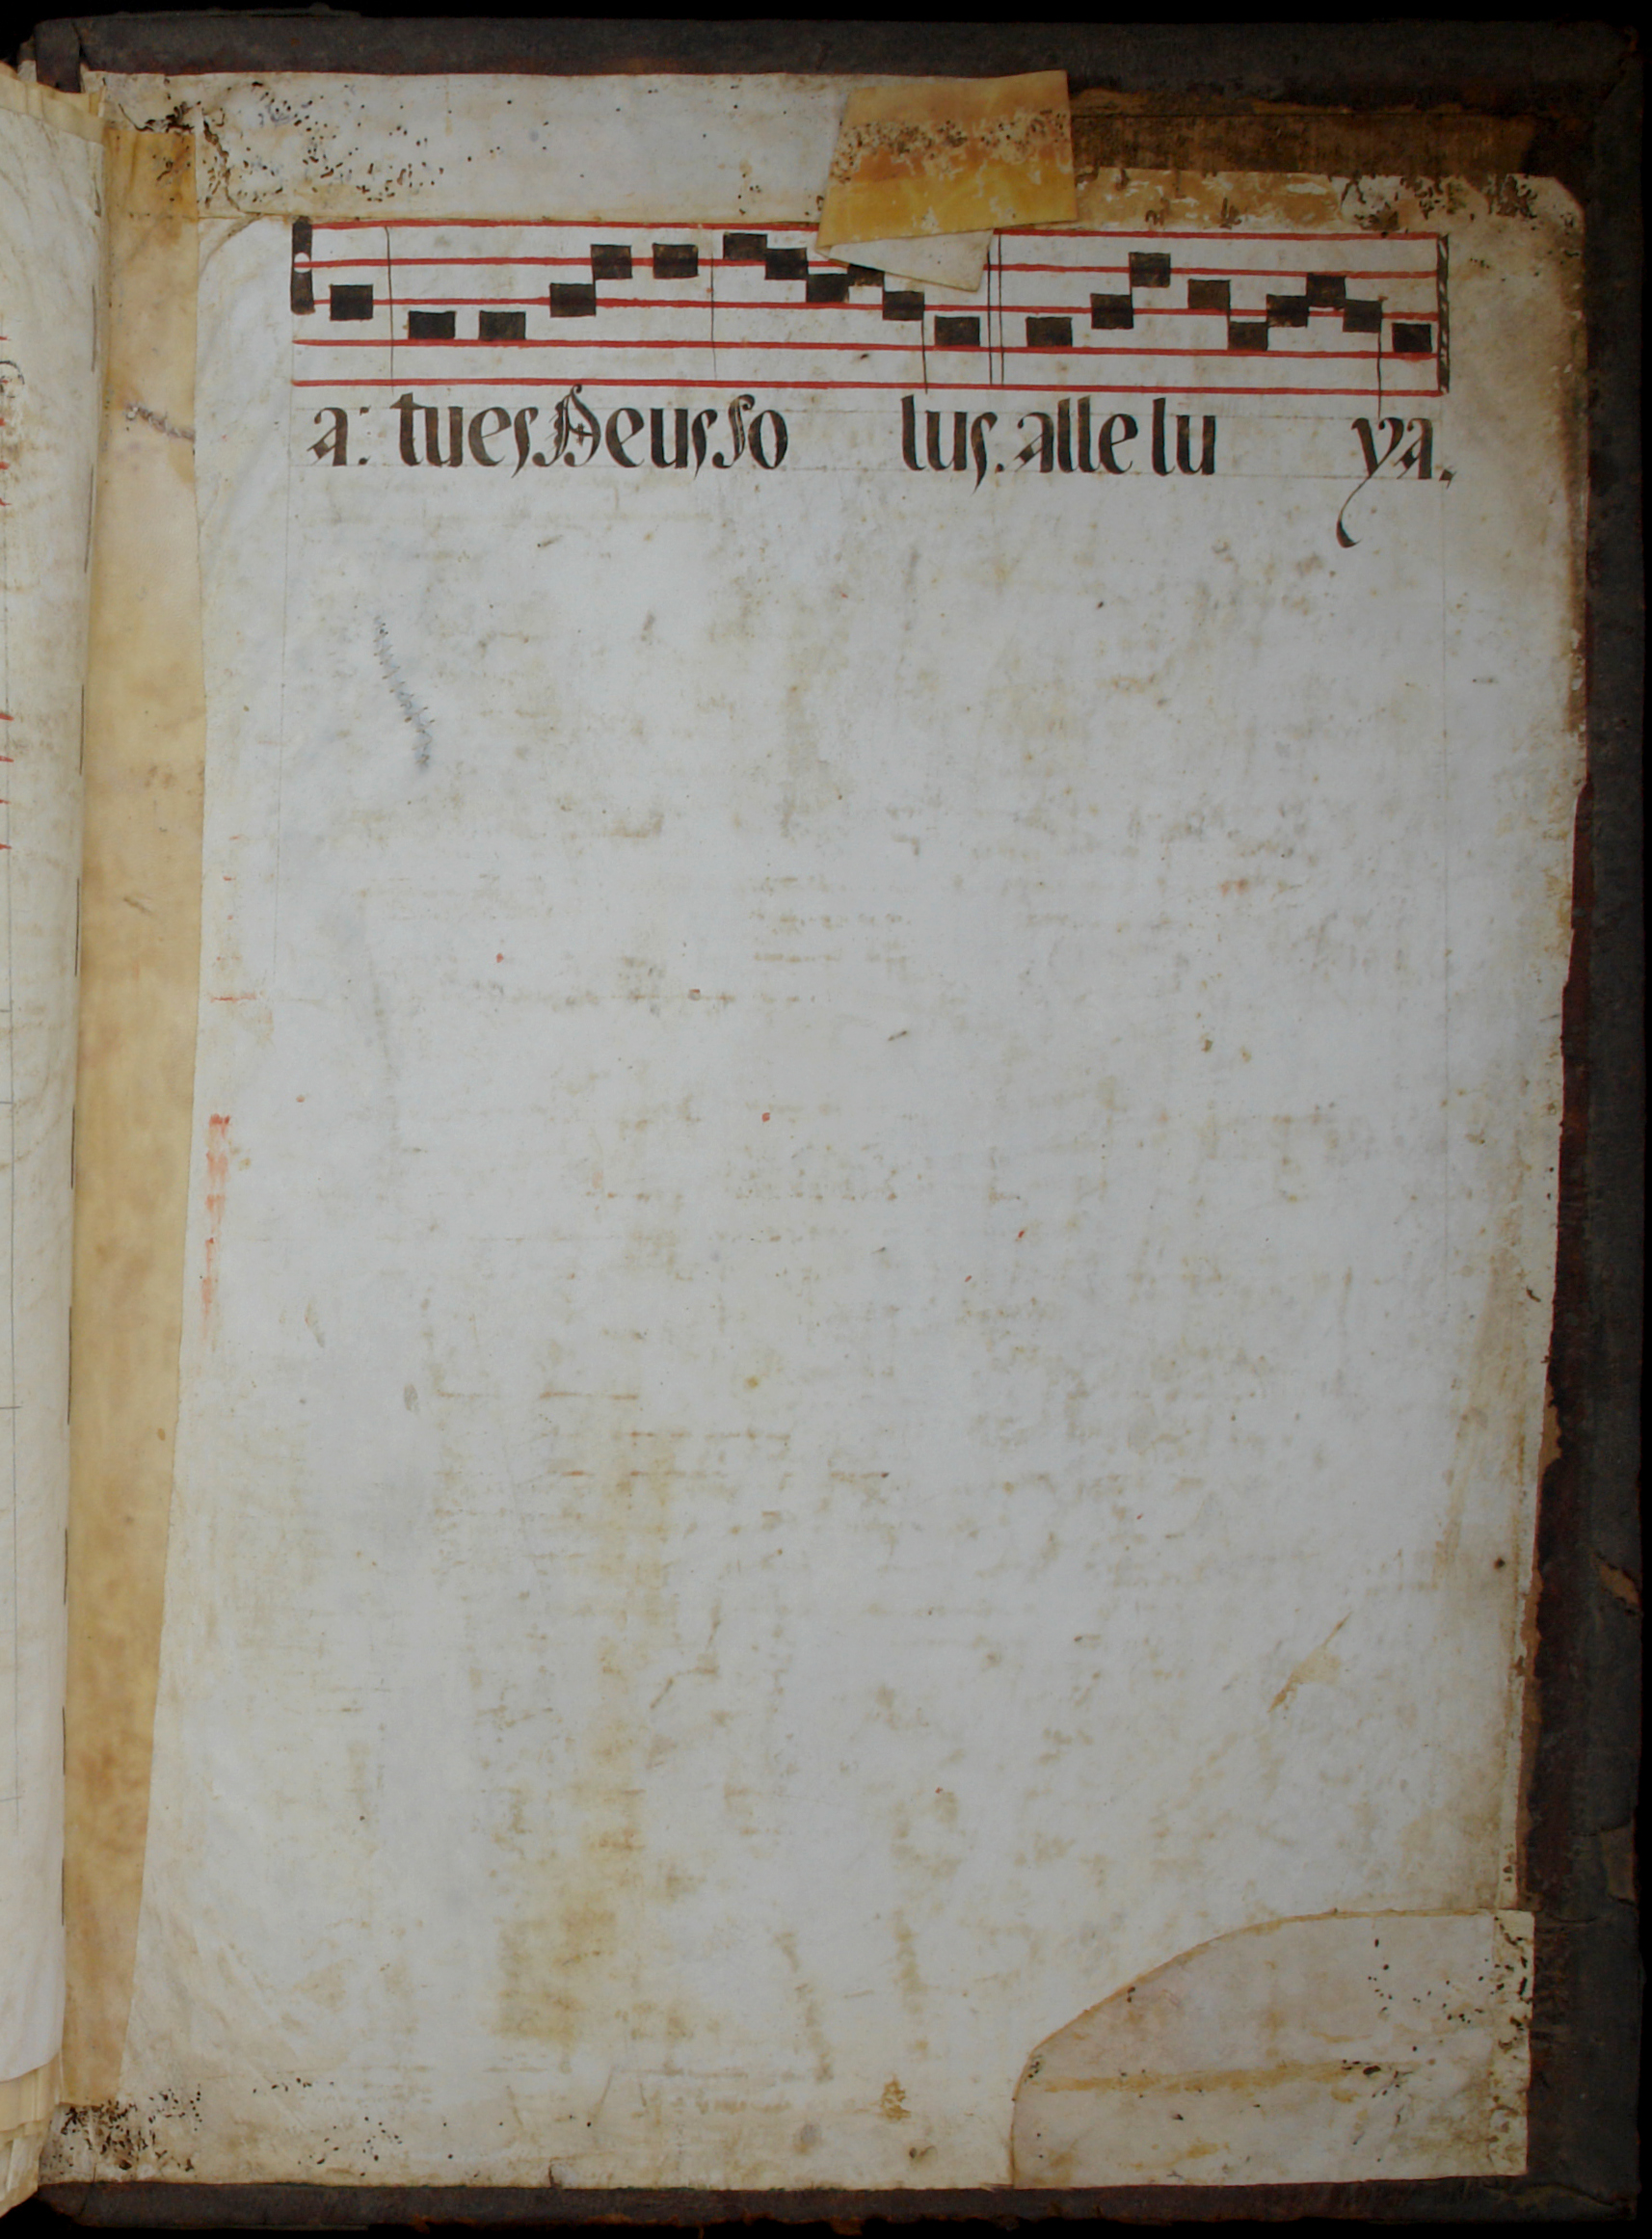 a: tu es Deus so lus. alle lu ya.